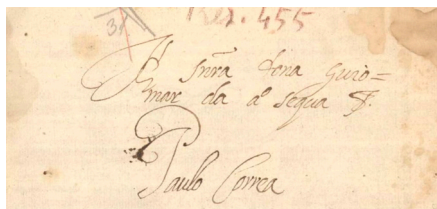 31 Res. 455
A snra dona guio=
mar da aº segua F.
Paulo Correa